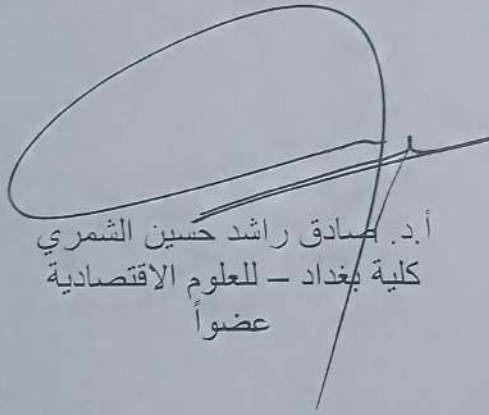 أ.د. صادق راشد حسين الشمري
كلية بغداد – للعلوم الاقتصادية
عضواً